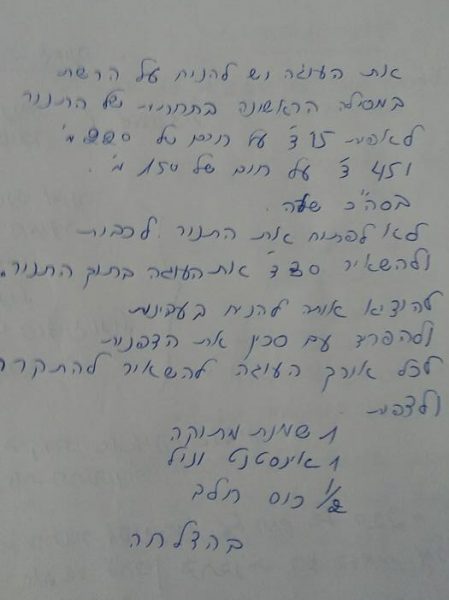 את העוגה יש להניח על הרשת
במסילה הראשונה בתחתית של התנור
לאפות 15 ד' על חום של 220 מ'
ו 45 ד' על חום של 150 מ'.
בסה"כ שעה.
לא לפתוח את התנור. לכבות
ולהשאיר 30 ד' את העוגה בתוך התנור.
להוציא אותה להניח בעדינות
ולהפריד עם סכין את הדפנות
לכל אורך העוגה להשאיר להתקרר
ולצפות.
1 שמנת מתוקה
1 אינסטנט וניל
1/2 כוס חלב
בהצלחה